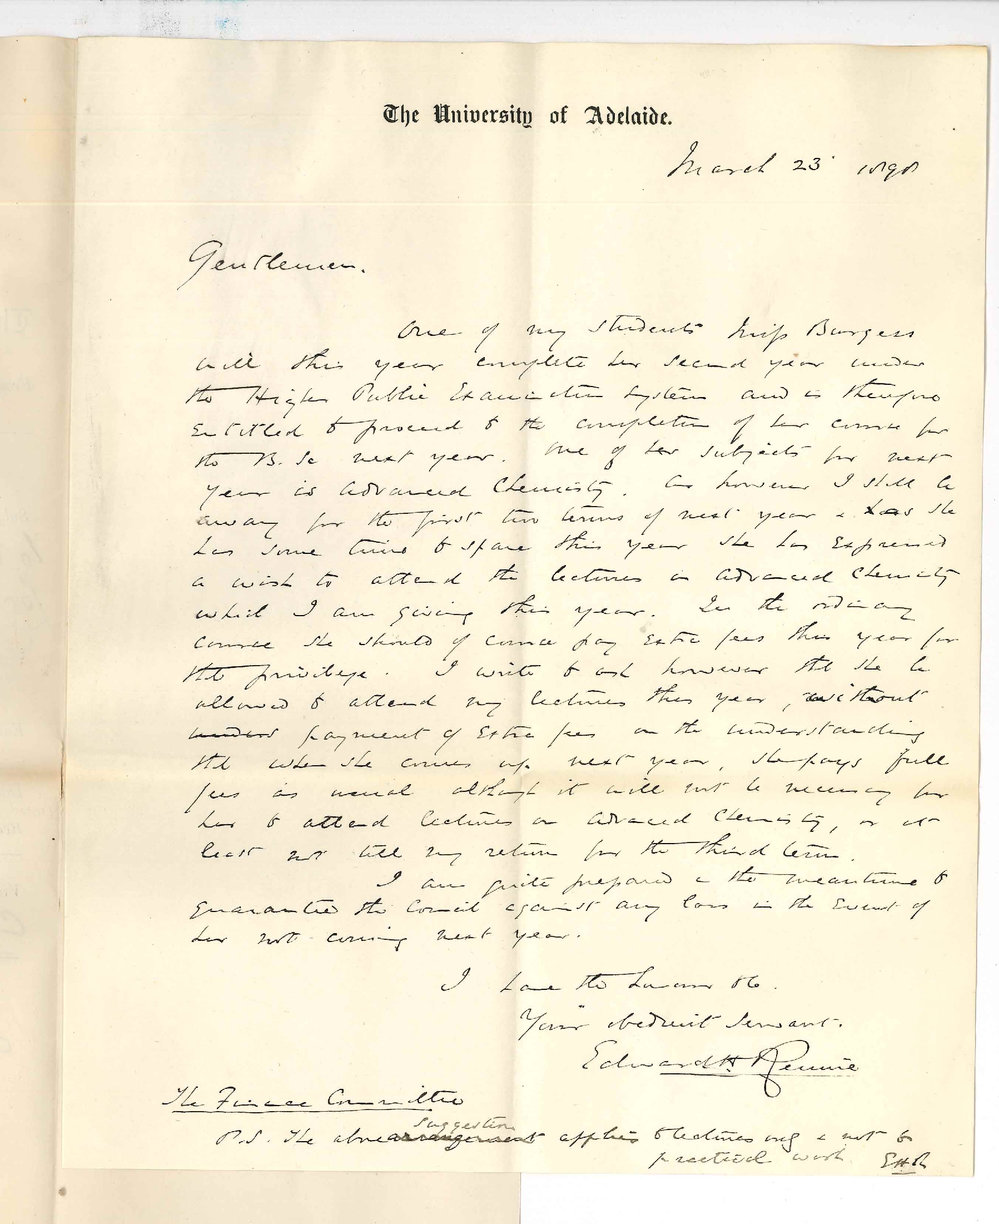 The University of Adelaide.
March 23 1898
Gentlemen.
One of my students Miss Burgess
will this year complete her second year under
the Higher Public Examination System and is therefore
entitled to proceed to the completion of her course for
the B. Sc next year. One of her subjects for next
year is Advanced Chemistry. As however I shall be
away for the first two terms of next year & as she
has some time to spare this year she has expressed
a wish to attend the lectures in Advanced Chemistry
which I am giving this year. In the ordinary
course she should of course pay extra fees this year for
the privilege. I write to ask however that she be
allowed to attend my lectures this year, without
payment of extra fees on the understanding
that when she comes up next year, she pays full
fees as usual although it will not be necessary for
her to attend lectures on Advanced Chemistry, or at
least not till my return for the third term.
I am quite prepared in the meantime to
guarantee the Council against any loss in the event of
her not coming next year.
I have the honour to be.
Your obedient servant.
Edward H Rennie
The Finance Committee
suggestion
P.S. The above arrangement applies to lectures only & not to
practical work. EHR